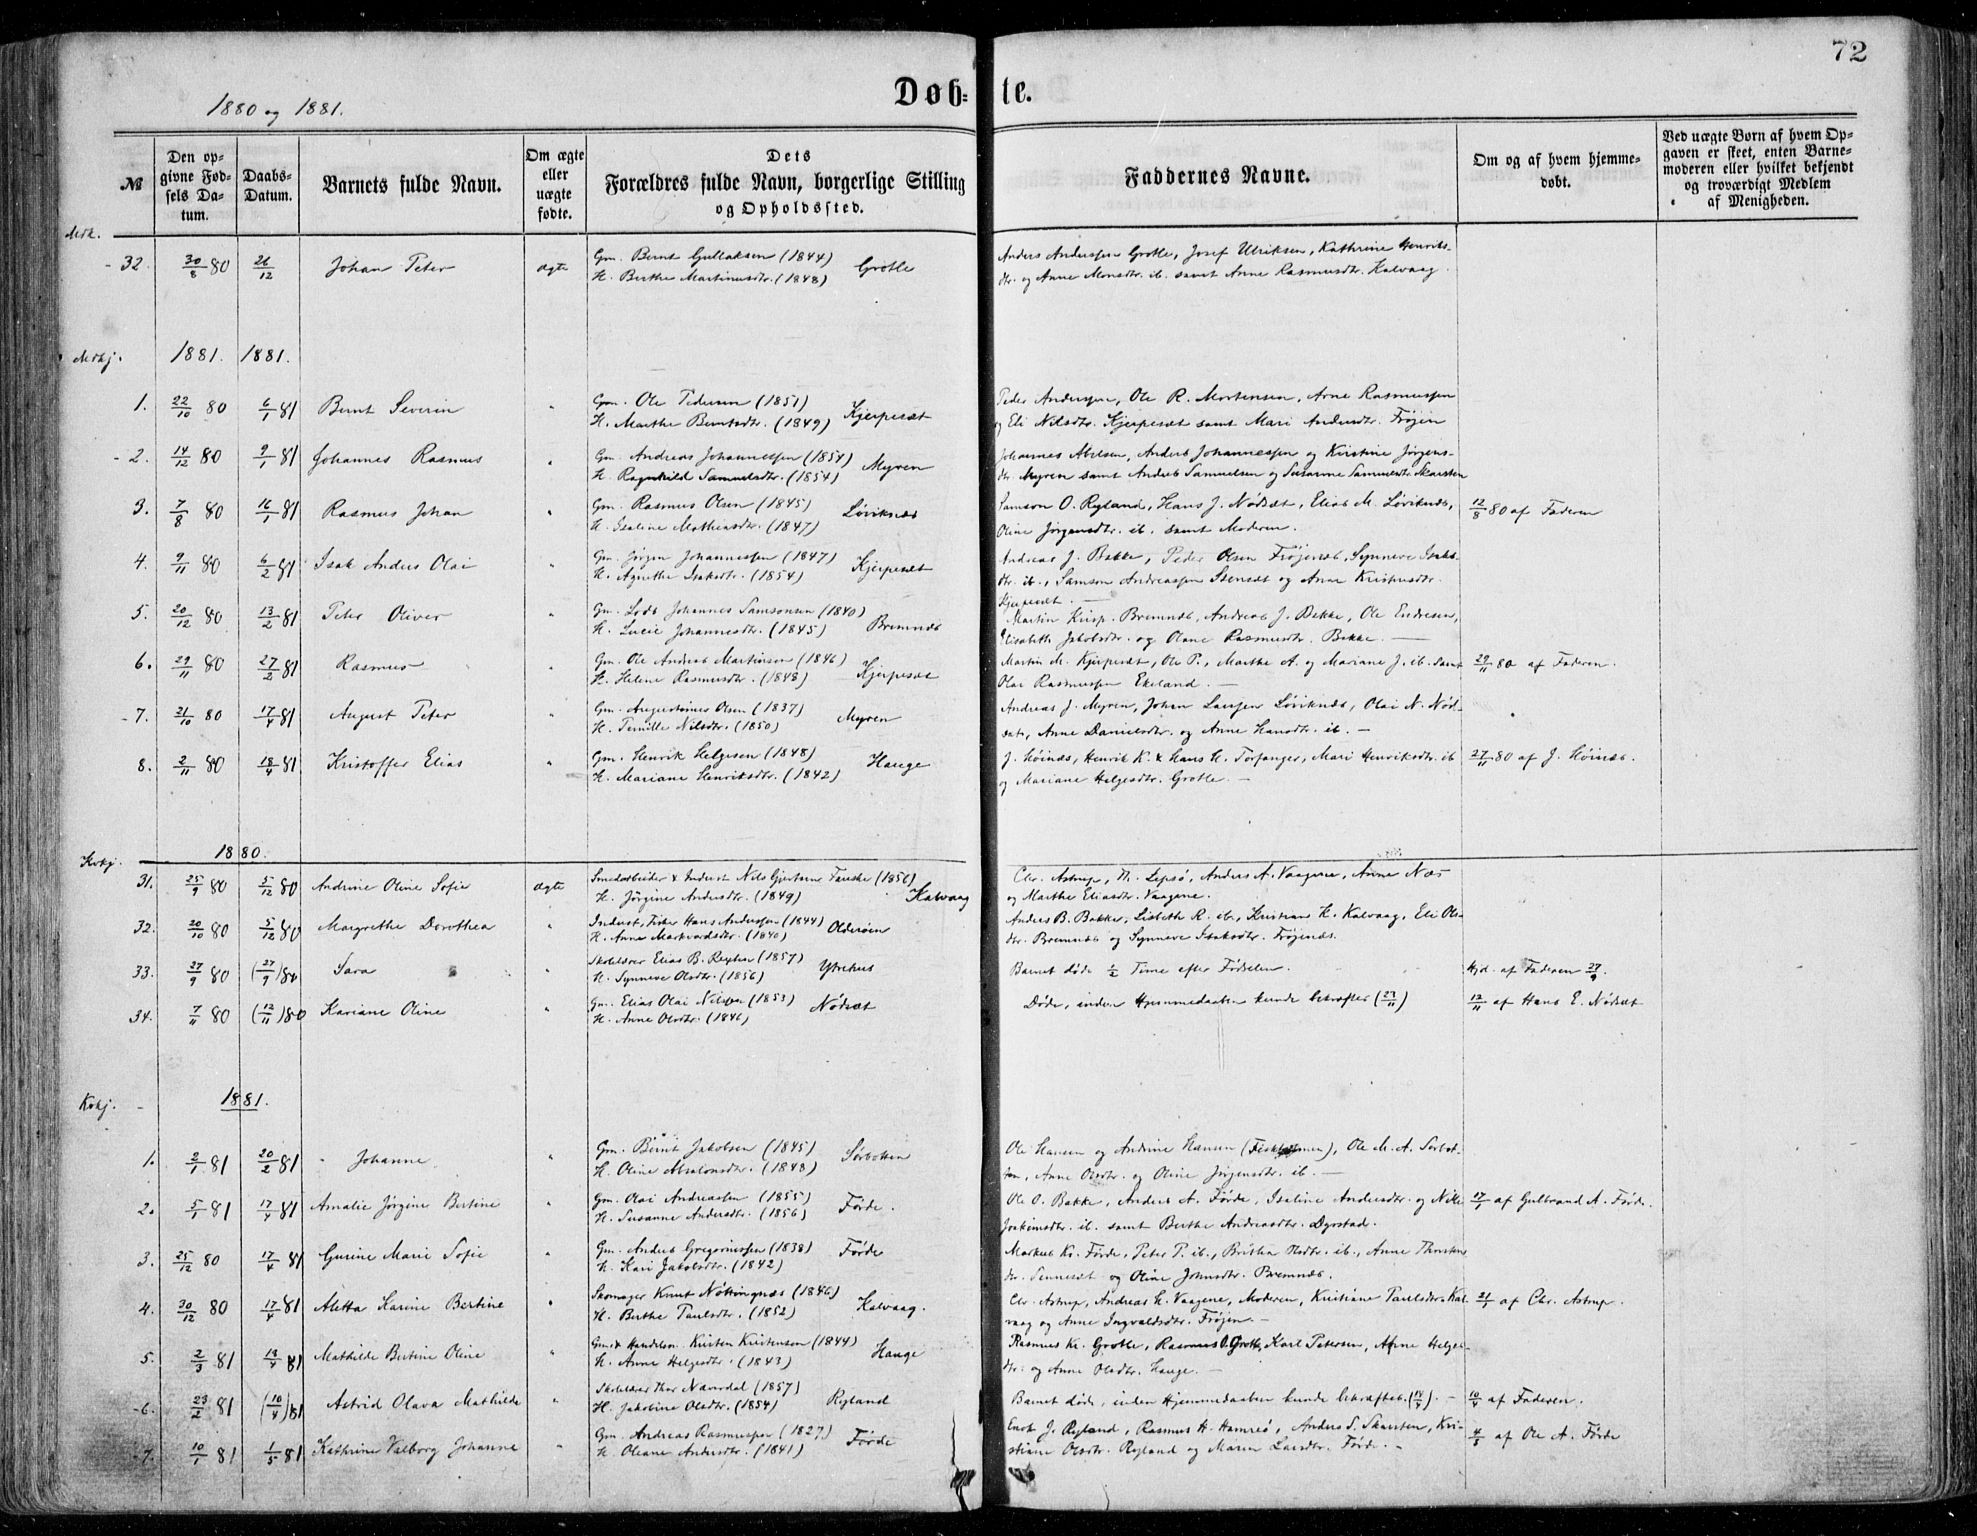 72
Døb- te.
1880 og 1881.
№
Den opgivne Fødsels Datum.
Daabs-Datum.
Barnets fulde Navn.
Om ægte eller uægte fødte.
Dets Forældres fulde Navn, borgerlige Stilling og Opholdssted.
Faddernes Navne.
Om og af hvem hjemmedøbt.
Ved uægte Børn af hvem Opgaven er skeet, enten Barnemoderen eller hvilket bekjendt og troværdigt Medlem af Menigheden.
32. 30/8 80 26/12 Johan Peter ægte Gm. Bernt Gullaksen (1844) Grotle Anders Anderssen Grotle, Josef Ulriksen, Kathrine Henriks-
H. Berthe Martinusdtr. (1848) dtr. og Anne Monsdtr. ib. samt Anne Rasmusdtr. Kalvaag.
Mdkj. 1881. 1881.
1. 22/10 80 6/1 81 Bernt Severin " Gm. Ole Pedersen (1851) Kjerpesæt Peder Anderssen, Ole R. Mortensen, Arne Rasmussen
H. Marthe Berntsdtr. (1849) og Eli Nilsdtr. Kjerpesæt samt Mari Andersdtr. Frøjen
2. 14/12 80 9/1 81 Johannes Rasmus " Gm. Andreas Johannessen (1854) Myren Johannes Abelsen, Anders Johannessen og Kristine Jørgens-
H. Ragnhild Samuelsdtr. (1854) dtr. Myren samt Anders Samuelsen og Susanne Samuelsdtr. Skarsten
3. 7/8 80 16/1 81 Rasmus Johan " Gm. Rasmus Olsen (1845) Løviknæs Samson O. Ryland, Hans J. Nødsæt, Elias M. Løviknæs, 12/8 80 af Faderen
H. Iseline Mathiasdtr. (1847) Oline Jørgensdtr. ib. samt Moderen.
4. 9/11 80 6/2 81 Isak Anders Olai " Gm. Jørgen Johannessen (1847) Kjerpesæt Andreas J. Bakke, Peder Olsen Frøjenæs, Synneve Isaks-
H. Agnethe Isaksdtr. (1854) dtr. ib., Samson Andreassen Stensæt og Anne Kristensdtr.
Kjerpesæt.
5. 20/12 80 13/2 81 Peter Oliver " Gm. Lods Johannes Samsonsen (1840) Bremnæs Martin Krisp. Bremnæs, Andreas J. Bakke, Ole Endresen,
H. Lucie Johannesdtr. (1845) Elisabeth Jakobsdtr. og Olane Rasmusdtr. Bakke. —
6. 29/11 80 27/2 81 Rasmus " Gm. Ole Andreas Martinsen (1846) Kjerpesæt Martin M. Kjerpesæt, Ole P., Marthe A. og Mariane J. ib. samt 29/11 80 af Faderen.
H. Helene Rasmusdtr. (1843) Olai Rasmussen Ekeland. —
7. 21/10 80 17/4 81 August Peter " Gm. Augustinus Olsen (1837) Myren Andreas J. Myren, Johan Larssen Løviknæs, Olai N. Nød-
H. Pernille Nilsdtr. (1850) sæt, Anne Danielsdtr. og Anne Hansdtr. ib. —
8. 2/11 80 18/4 81 Kristoffer Elias " Gm. Henrik Helgesen (1848) Hauge J. Høinæs, Henrik K. & Hans H. Torfanger, Mari Henriksdtr. ib 27/11 80 af J. Høinæs.
H. Mariane Henriksdtr. (1842) og Mariane Helgesdtr. Grotle. —
Kvkj. 1880.
31. 25/9 80 5/12 80 Andrine Oline Sofie ægte Smedarbeider & Inderst Nils Gjertsen Fauske (1856) Kalvaag Chr. Astrup, Th. Lepsø, Anders A. Vaagene, Anne Næs
H. Jørgine Andersdtr. (1849) og Marthe Eliasdtr. Vaagene.
32. 20/10 80 5/12 80 Margrethe Dorothea " Inderst, Fisker Hans Anderssen (1844) Olderøen Anders B. Bakke, Lisbeth R. ib., Kristian K. Kalvaag, Eli Ols-
H. Anne Markvardsdtr. (1840) dtr. Bremnæs og Synneve Isaksdtr. Frøjenæs.
33. 27/9 80 (27/9) 80 Sara " Skolelærer Elias B. (1857) Ytrehus Barnet døde ½ Time efter Fødselen. Hjd. af Faderen 27/9.
H. Synneve Olsdtr. (1856)
34. 7/11 80 (12/11) 80 Kariane Oline " Gm. Elias Olai Nilssen (1853) Nødsæt Døde, inden Hjemmedaaben kunde bekræftes (27/11) 12/11 af Hans E. Nødsæt
H. Anne Olsdtr. (1846)
Kvkj. 1881.
1. 2/1 81 20/2 81 Johanne " Gm. Bernt Jakobsen (1845) Sørbotten Ole Hansen og Andrine Hansen, Ole M. A. Sørbot-
H. Oline Absalonsdtr. (1848) ten, Anne Olsdtr. og Oline Jørgensdtr. ib. —
2. 5/1 81 17/4 81 Amalie Jørgine Bertine " Gm. Olai Andreassen (1855) Førde. Ole O. Bakke, Anders A. Førde, Iseline Andersdtr. og Nille 17/1 af Gulbrand A. Førde.
H. Susanne Andersdtr. (1856) Joakimsdtr. ib. samt Berthe Andreasdtr. Dyrstad.
3. 25/12 80 17/4 81 Gurine Marie Sofie " Gm. Anders Gregoriussen (1838) Førde Markus Kr. Førde, Peter P. ib., Britha Olsdtr. ib., Anne Thorstens-
H. Kari Jakobsdtr. (1842) dtr. Sennesæt og Oline Johnsdtr. Bremnæs.
4. 30/12 80 17/4 81 Aletta Karine Bertine " Skomager Knut Nøttingnæs (1846) Kalvaag. Chr. Astrup, Andreas H. Vaagene, Moderen, Kristiane Paulsdtr. Kal- 21/1 af Chr. Astrup.
H. Berthe Paulsdtr. (1852) vaag og Anne Ingvaldsdtr. Frøjen. —
5. 2/3 81 18/4 81 Mathilde Bertine Oline " Gm. & Handelsm. Kristen Kristensen (1844) Hauge Rasmus Kr. Grotle, Rasmus O. Grotle, Karl Petersen, Anne Helges-
H. Anne Helgesdtr. (1843) dtr. og Anne Olsdtr. Hauge. —
6. 23/2 81 (10/4) 81 Astrid Olava Mathilde Skolelærer Thor Navrdal (1857) Ryland Barnet døde, inden Hjemmedaaben kunde bekræftes. (14/4). — 10/4 af Faderen.
H. Jakobine Olsdtr. (1854)
7. 10/1 81 1/5 81 Kathrine Valborg Johanne " Gm. Andreas Rasmussen (1827) Førde Enok J. Ryland, Rasmus H. Hamreø, Anders S. Skarsten, Kri- 4/3 af Ole A. Førde
H. Oleane Andersdtr. (1841) stiane Olsdtr. Ryland og Maren Larsdtr. Førde. —